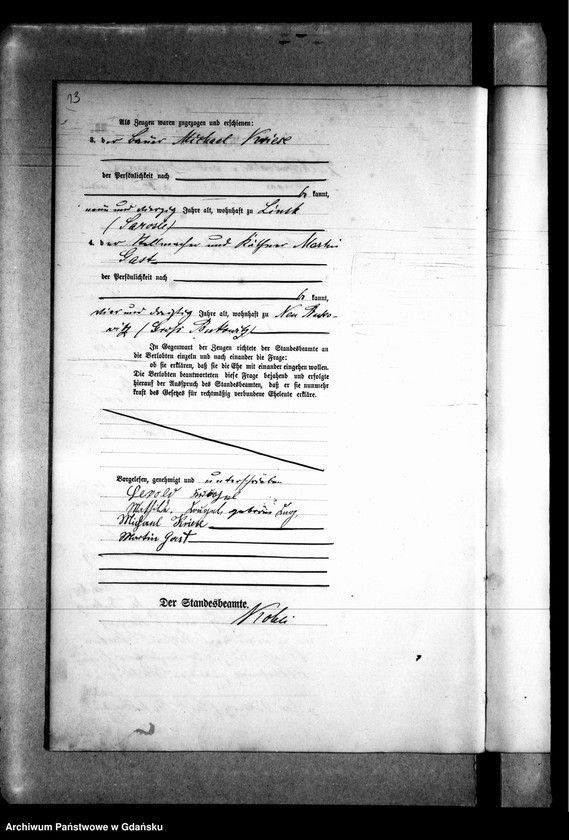 13
Als Zeugen waren zugezogen und erschienen:
3. der Bauer Michael Kriese
der Persönlichkeit nach
be kannt,
neun und vierzig Jahre alt, wohnhaft zu Linsk
4. der Stellmacher und Käthner Martin
Gast
der Persönlichkeit nach
be kannt,
vier und dreißig Jahre alt, wohnhaft zu Neu Buko-
witz (Groß Bukowitz)
In Gegenwart der Zeugen richtete der Standesbeamte an
die Verlobten einzeln und nach einander die Frage:
ob sie erklären, daß sie die Ehe mit einander eingehen wollen.
Die Verlobten beantworteten diese Frage bejahend und erfolgte
hierauf der Ausspruch des Standesbeamten, daß er sie nunmehr
kraft des Gesetzes für rechtmäßig verbundene Eheleute erkläre.
Vorgelesen, genehmigt und unterschrieben
geborene
Michael Kriese
Martin Gast
Der Standesbeamte.
Archiwum Państwowe w Gdańsku